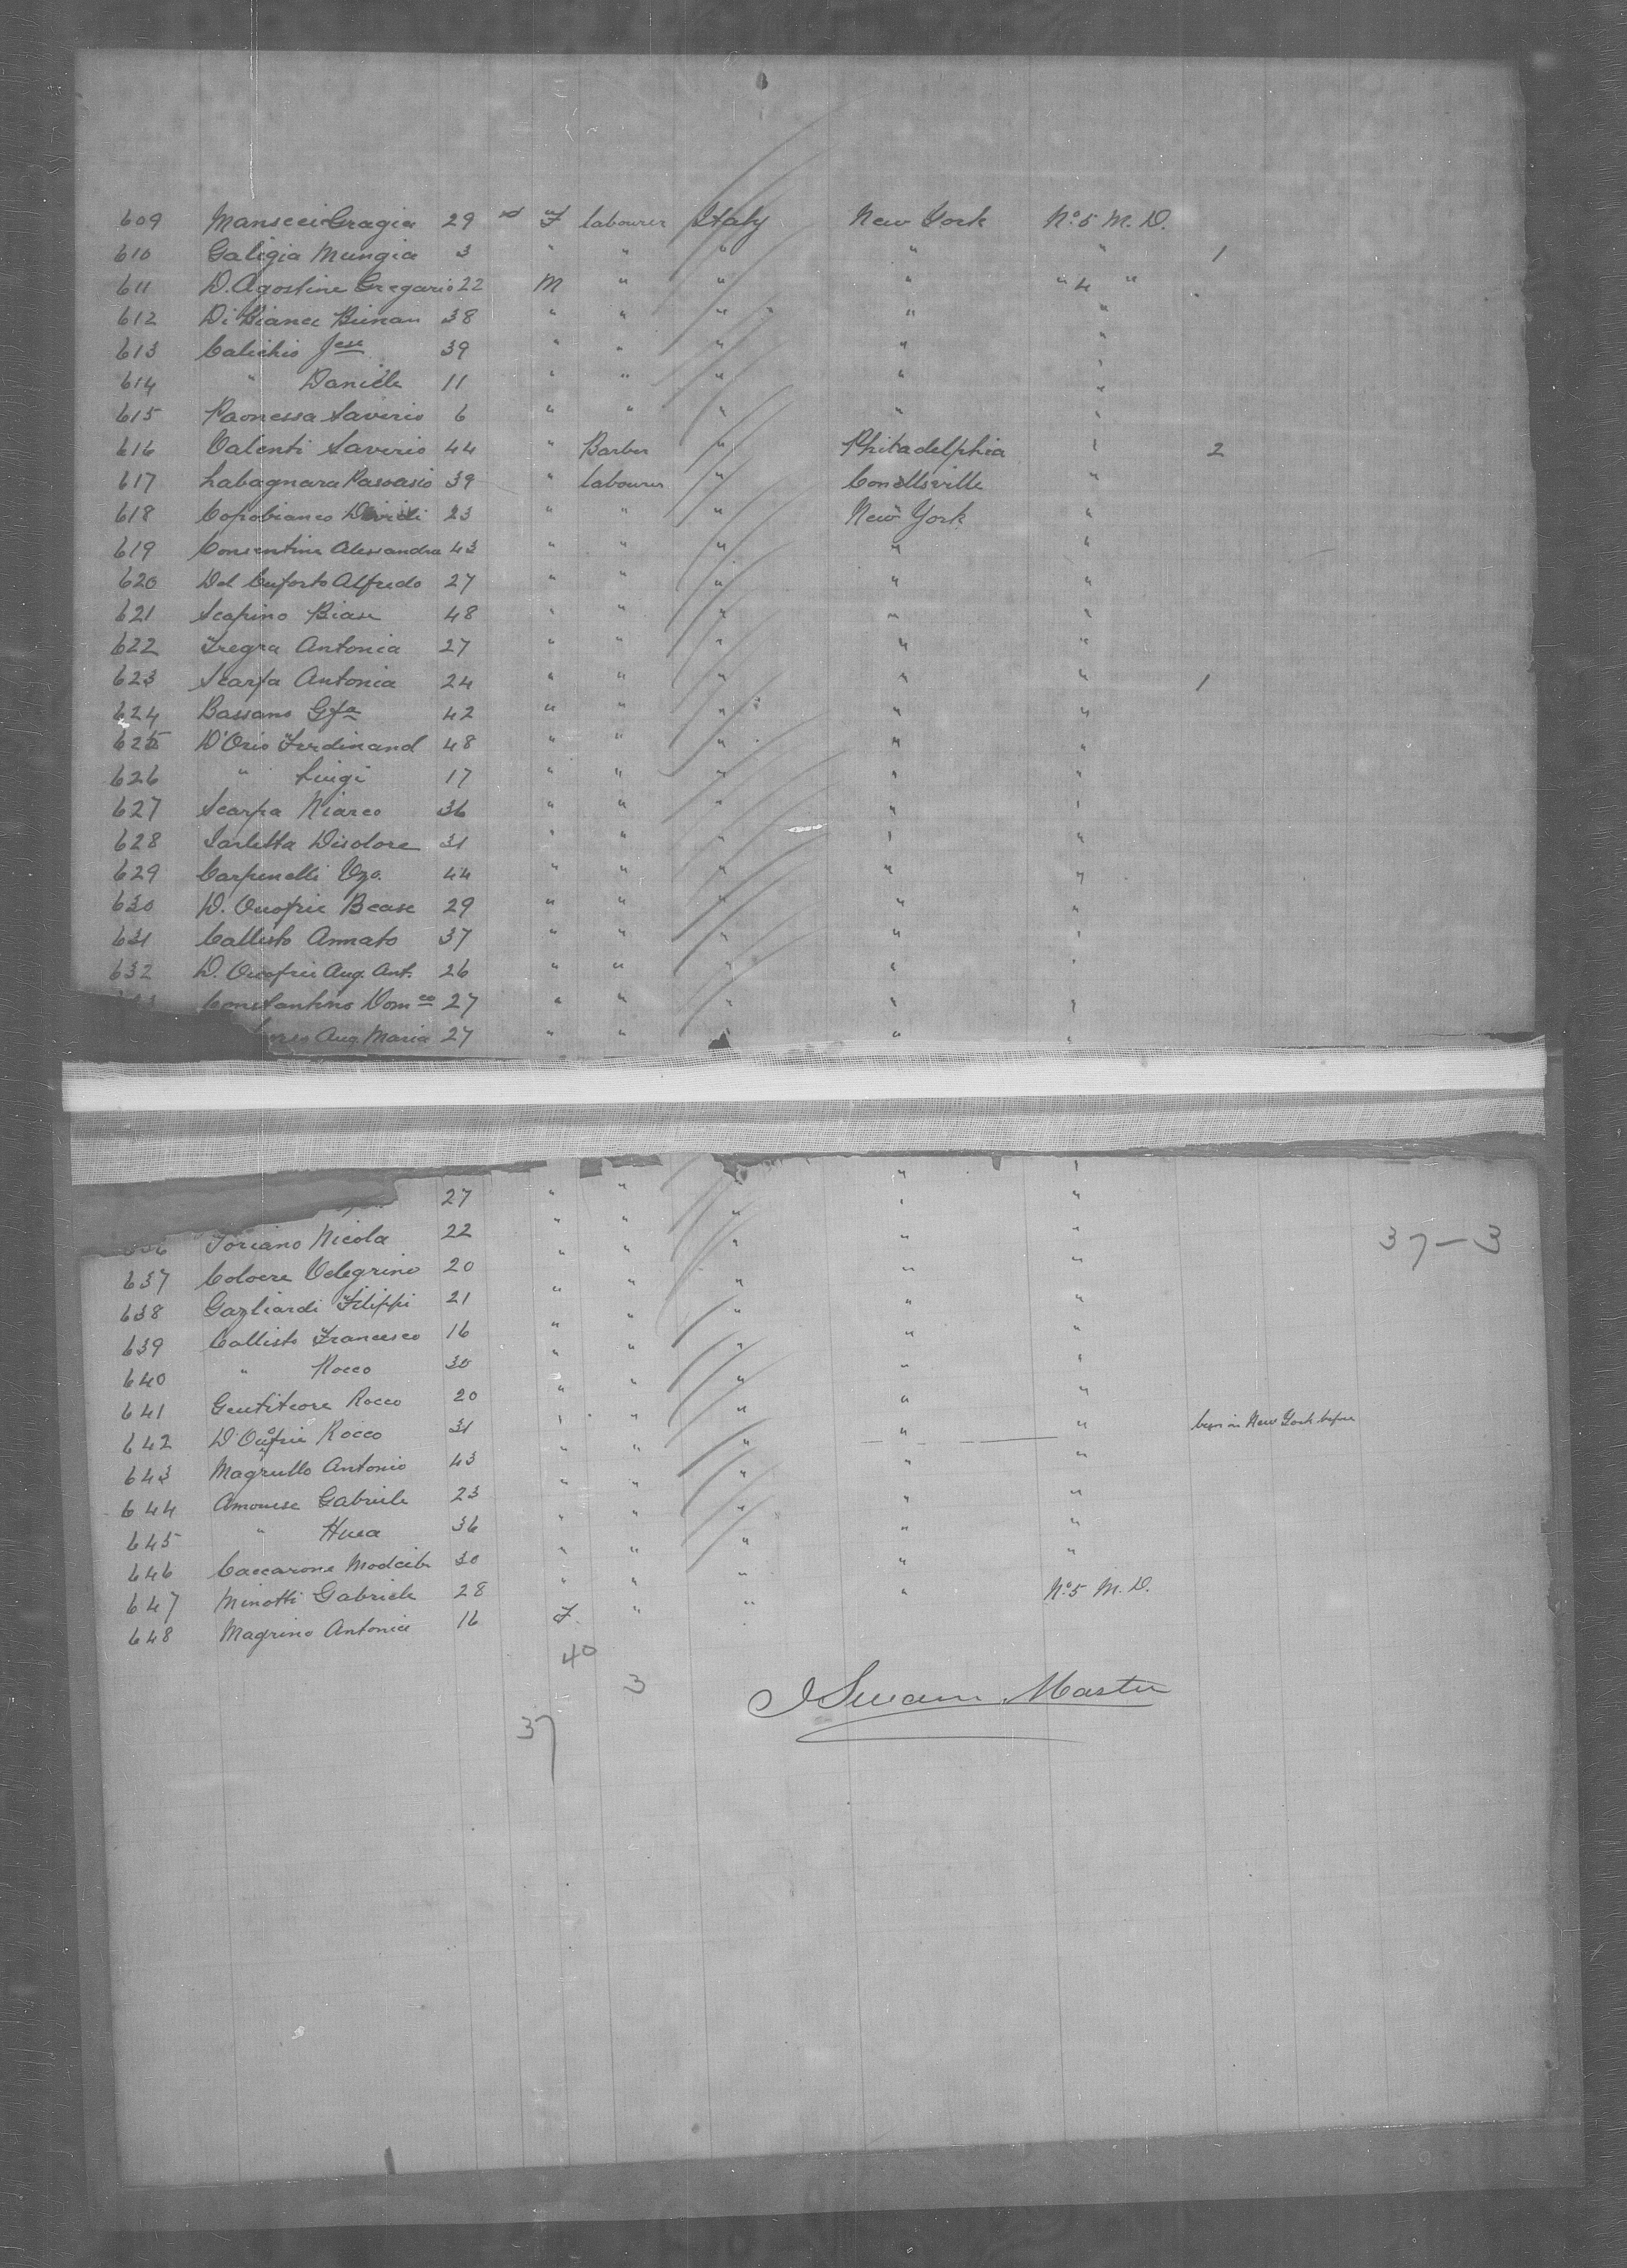 609 Manscci Gragia 29 F labourer Italy New York No. 5 M. D.
610 Galigia Mungia 3 " " " " " 1
611 D. Agostine Gregario 22 M " " " " 4 "
612 Di Bianca 38 " " " " "
613 Calichio Jese 39 " " " " "
614 " Daniele 11 " " " " "
615 Paonessa Saverio 6 " " " " "
616 Valenti Saverio 44 " Barber " Philadelphia " 2
617 Labagnara Pasvasio 39 " labourer " Conellsville "
618 Copobianco 23 " " " New York "
619 Consentino Alessandra 43 " " " " "
620 Del Alfredo 27 " " " " "
621 Scapino Biase 48 " " " " "
622 Fregra Antonia 27 " " " " "
623 Scarpa Antonia 24 " " " " " 1
624 Bassano Gfa 42 " " " " "
625 D'Orio Ferdinand 48 " " " " "
626 " Luigi 17 " " " " "
627 Scarpa Niarco 36 " " " " "
628 Sarletta 31 " " " " "
629 Carpenelli Vzo. 44 " " " " "
630 D. Onofrie Bease 29 " " " " "
631 Callisto Annato 37 " " " " "
632 D. Onofrie Aug. Ant. 26 " " " " "
Constantino Domco 27 " " " " "
Aug. Maria 27 " " " " "
27 " " " " "
Toriano Nicola 22 " " " " "
37-3
637 Colvere Velegrino 20 " " " " "
638 Gagliardi Filippi 21 " " " " "
639 Callisto Francesco 16 " " " " "
640 " Rocco 30 " " " " "
641 Gentiteore Rocco 20 " " " " "
642 D Onofrie Rocco 31 " " " " " been in New York before
643 Magrullo Antonio 43 " " " " "
644 Amouese Gabriele 23 " " " " "
645 " 36 " " " " "
646 Caccarone 30 " " " " "
647 Minotti Gabriele 28 " " " " No. 5 M. D.
648 Magrino Antonia 16 F. " "
40
3
Master
37